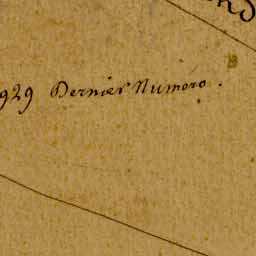 929 Dernier Numero.